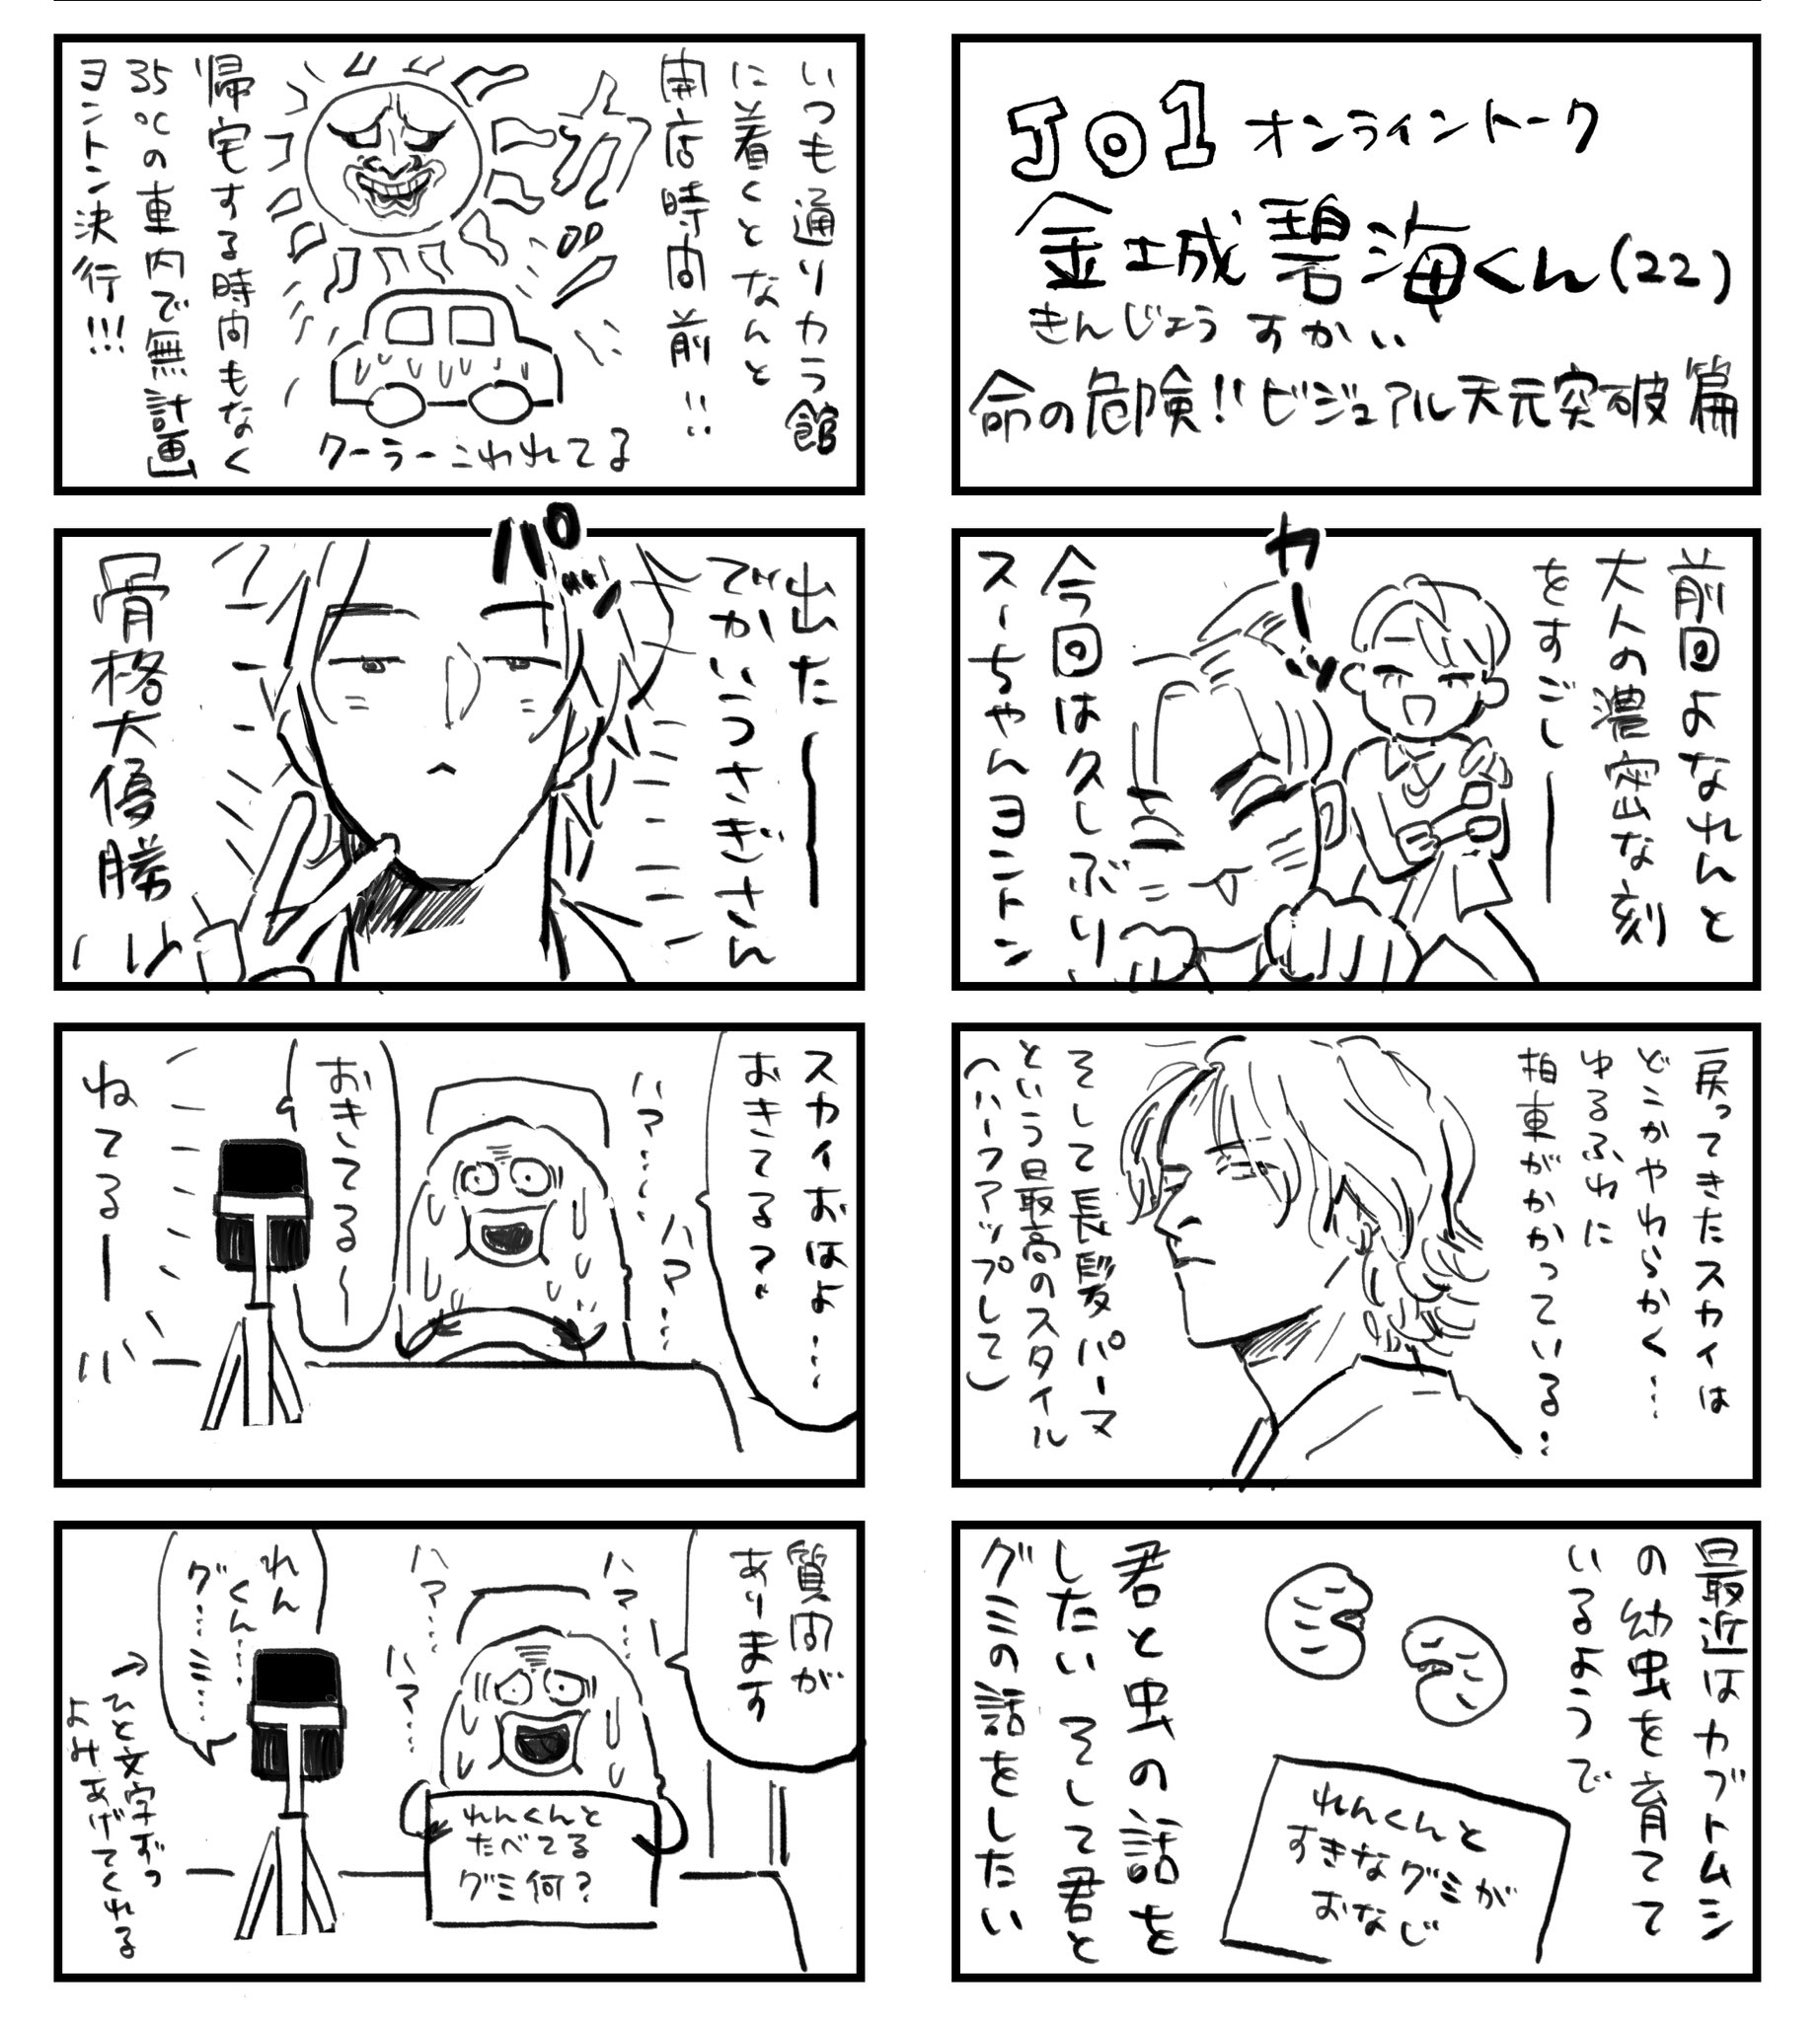 JO1 オンライントーク
金城碧海くん(22)
きんじょう すかい
命の危険!!ビジュアル天元突破篇
前回よなれんと
大人の濃密な刻
をすごし――
カーッ
今回は久しぶり
スーちゃんヨントン
戻ってきたスカイは
どこかやわらかく…
ゆるふわに
拍車がかかっている…
そして長髪パーマ
という最高のスタイル
(ハーフアップして)
最近はカブトムシ
の幼虫を育てて
いるようで
れんくんと
すきなグミが
おなじ
君と虫の話を
したい そして君と
グミの話をしたい
いつも通りカラ館
に着くとなんと
開店時間前!!
クーラーこわれてる
帰宅する時間もなく
35℃の車内で無計画
ヨントン決行!!!
出た――
でかいうさぎさん
パッ
骨格大優勝
スカイおはよ…
おきてる?
ハァ…
ハァ…
おきてる〜
ねてるー
質問が
あります
ハァ…
ハァ…
ハァ…
れんくんと
たべてる
グミ何?
れん
くん…
グ…ミ…
→ひと文字ずつ
よみあげてくれる